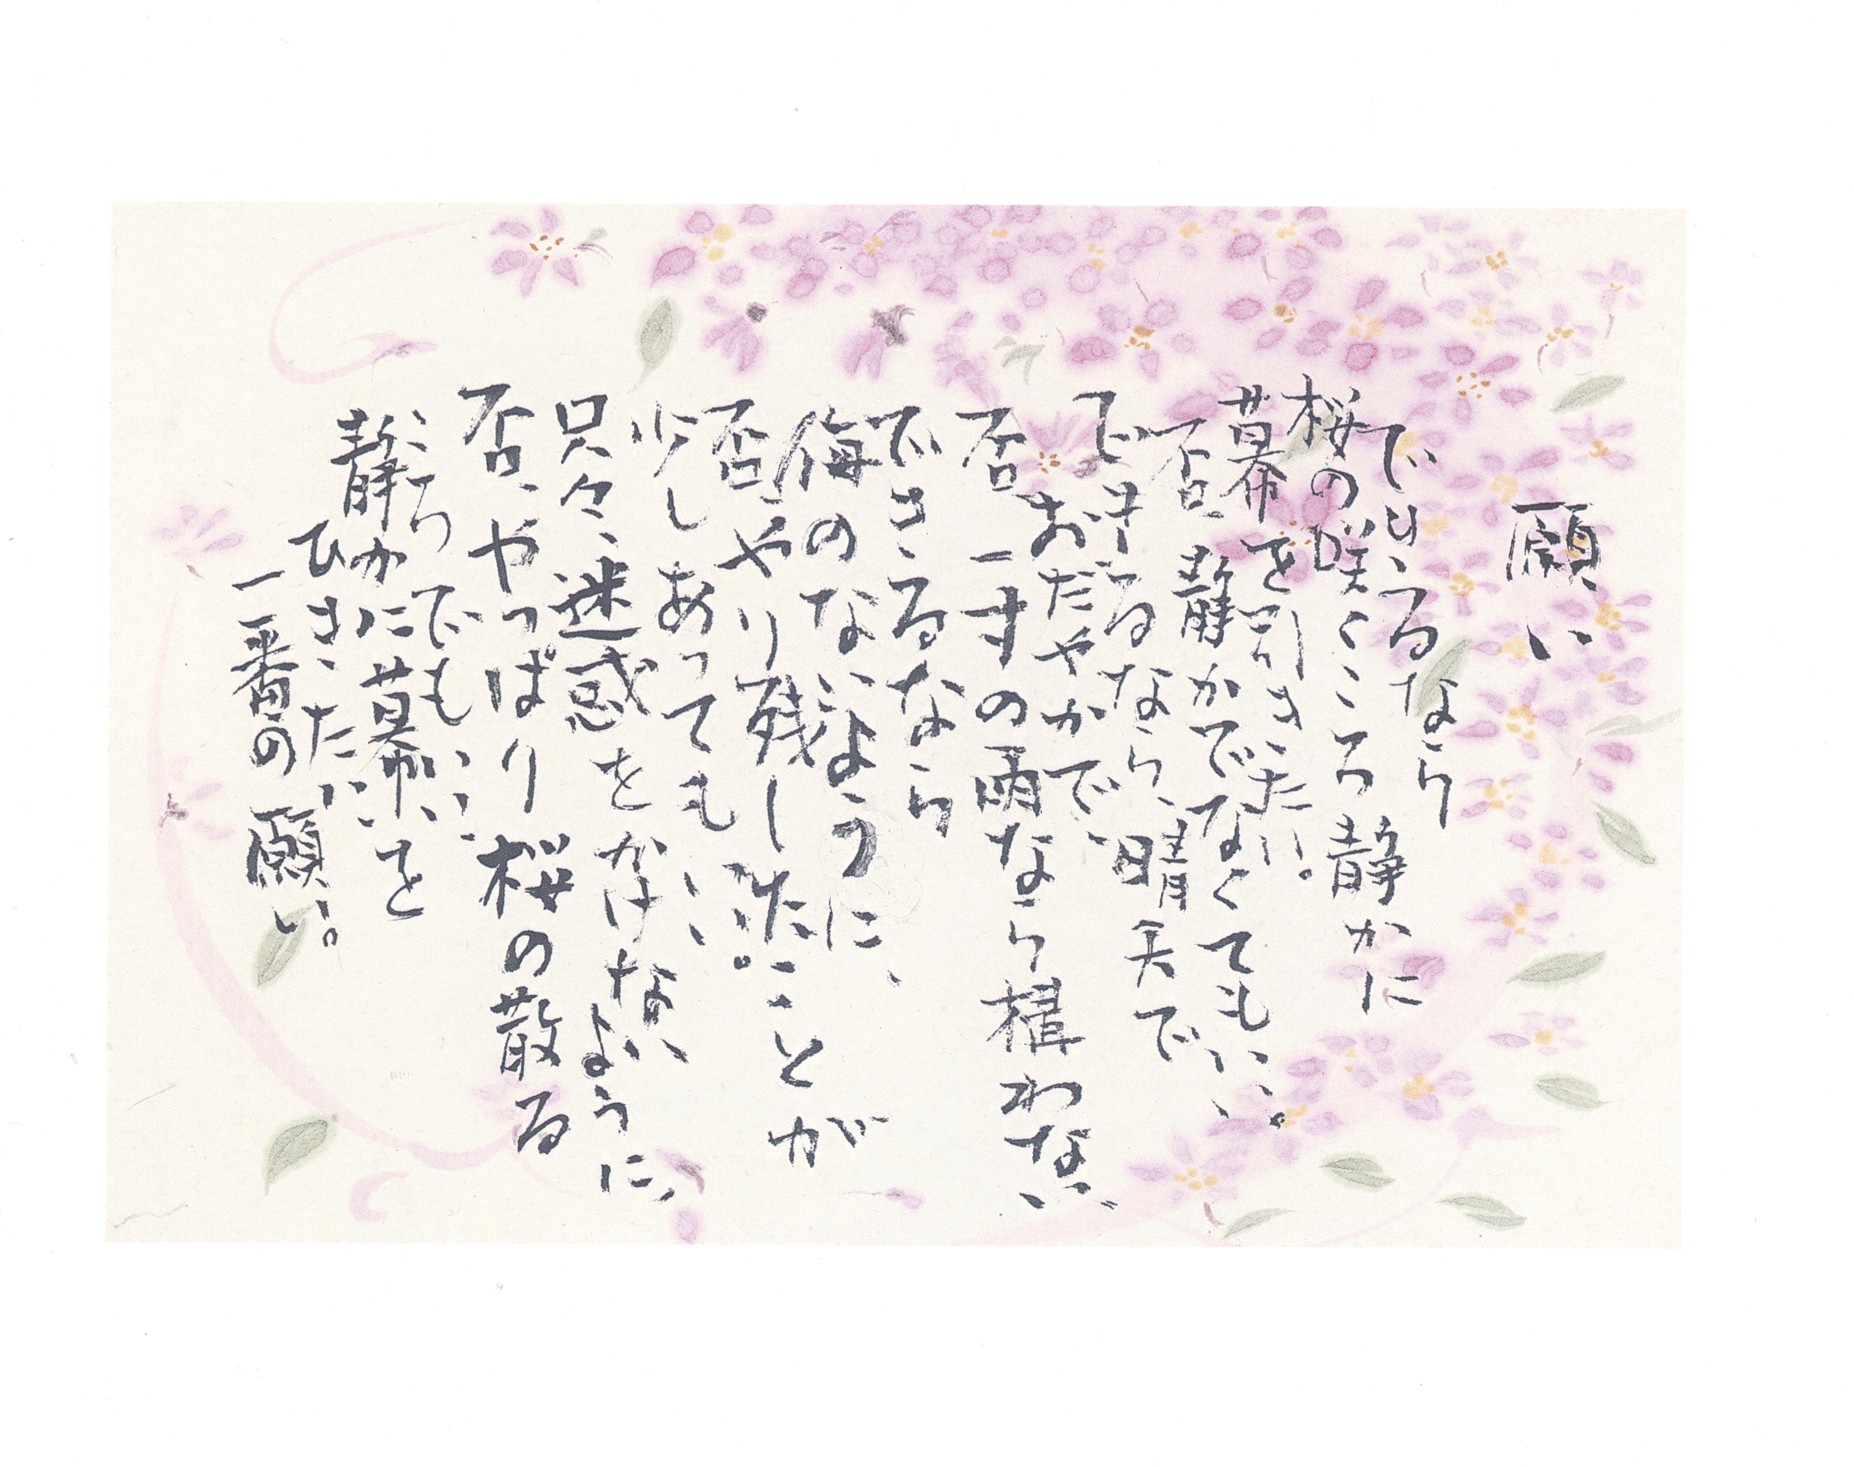 願い
できるなら
桜の咲くころ静かに
幕を引きたい。
否、静かでなくてもいい。
できるなら、晴天で
おだやかで、
否、一寸の雨なら構わない
できるなら
悔のないように、
否、やり残したことが
少しあってもいい
只々、迷惑をかけないように、
否、やっぱり桜の散る
ころでもいい、
静かに幕を
ひきたい
一番の願い。